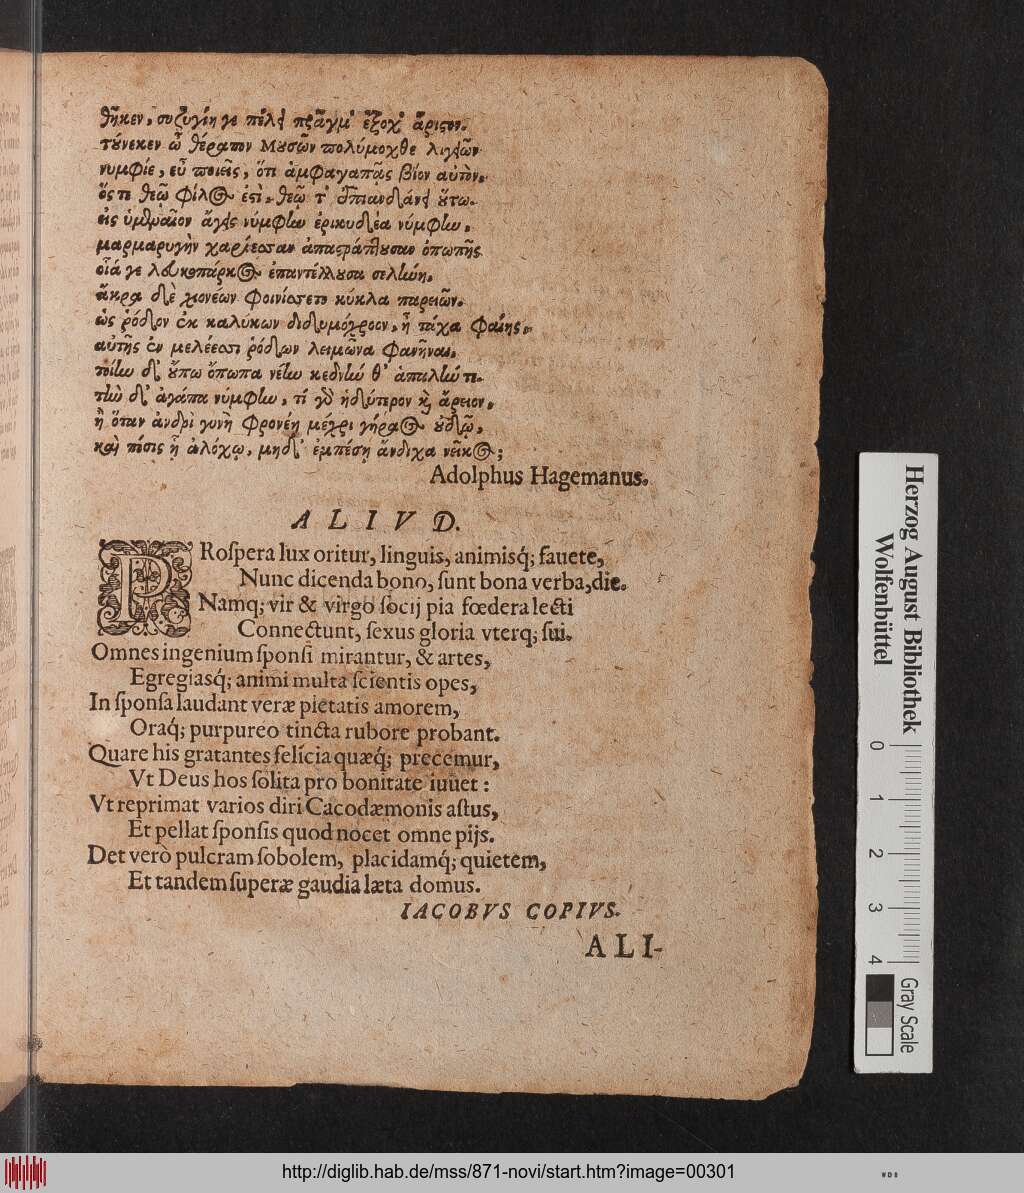 θῆκεν, συζυγίην γε πέλει πρᾶγμ' ἔξοχ' ἄριστον.
τούνεκεν ὦ θέραπον Μουσῶν πολύμοχθε λιγειῶν
νυμφίε, εὖ ποιεῖς, ὅτι ἀμφαγαπᾷς βίον αὐτὸν,
ὅς τι θεῷ φίλος ἐστὶ, θεῷ τ' ἐπιανδάνει οὕτω.
εἰς ὑμέναιον ἄγεις νύμφην ἐρικυδέα νύμφην,
μαρμαρυγὴν χαρίεσσαν ἀπαστράπτουσαν ὀπωπῆς
οἷά γε λευκοπάρηος ἐπαντέλλουσα σελήνη,
ἄκρα δὲ χιονέων φοινίσσετο κύκλα παρειῶν,
ὡς ῥόδον ἐκ καλύκων διδυμόχροον, ἦ τάχα φαίης,
αὐτῆς ἐν μελέεσσι ῥόδων λειμῶνα φανῆναι,
τοίην δ' οὔπω ὄπωπα νέην κεδνήν θ' ἁπαλήν τε.
τὴν δ' ἀγάπα νύμφην, τί γὰρ ἡδύτερον καὶ ἄρειον,
ἢ ὅταν ἀνδρὶ γυνὴ φρονέῃ μέχρι γήραος οὐδῷ,
καὶ πόσις ᾗ ἀλόχῳ, μηδ' ἐμπέσῃ ἄνδιχα νεῖκος;
Adolphus Hagemanus.
ALIVD.
PRoſpera lux oritur, linguis, animisq́; fauete,
Nunc dicenda bono, ſunt bona verba, die.
Namq; vir & virgo ſocij pia fœdera lecti
Connectunt, ſexus gloria vterq; ſui.
Omnes ingenium ſponſi mirantur, & artes,
Egregiasq́; animi multa ſcientis opes,
In ſponſa laudant veræ pietatis amorem,
Oraq́; purpureo tincta rubore probant.
Quare his gratantes felicia quæq́; precemur,
Vt Deus hos ſolita pro bonitate iuuet:
Vt reprimat varios diri Cacodæmonis aſtus,
Et pellat ſponſis quod nocet omne pijs.
Det verò pulcram ſobolem, placidamq́; quietem,
Et tandem ſuperæ gaudia læta domus.
IACOBVS COPIVS.
ALI-
Herzog August Bibliothek
Wolfenbüttel
0 1 2 3 4
Gray Scale
http://diglib.hab.de/mss/871-novi/start.htm?image=00301